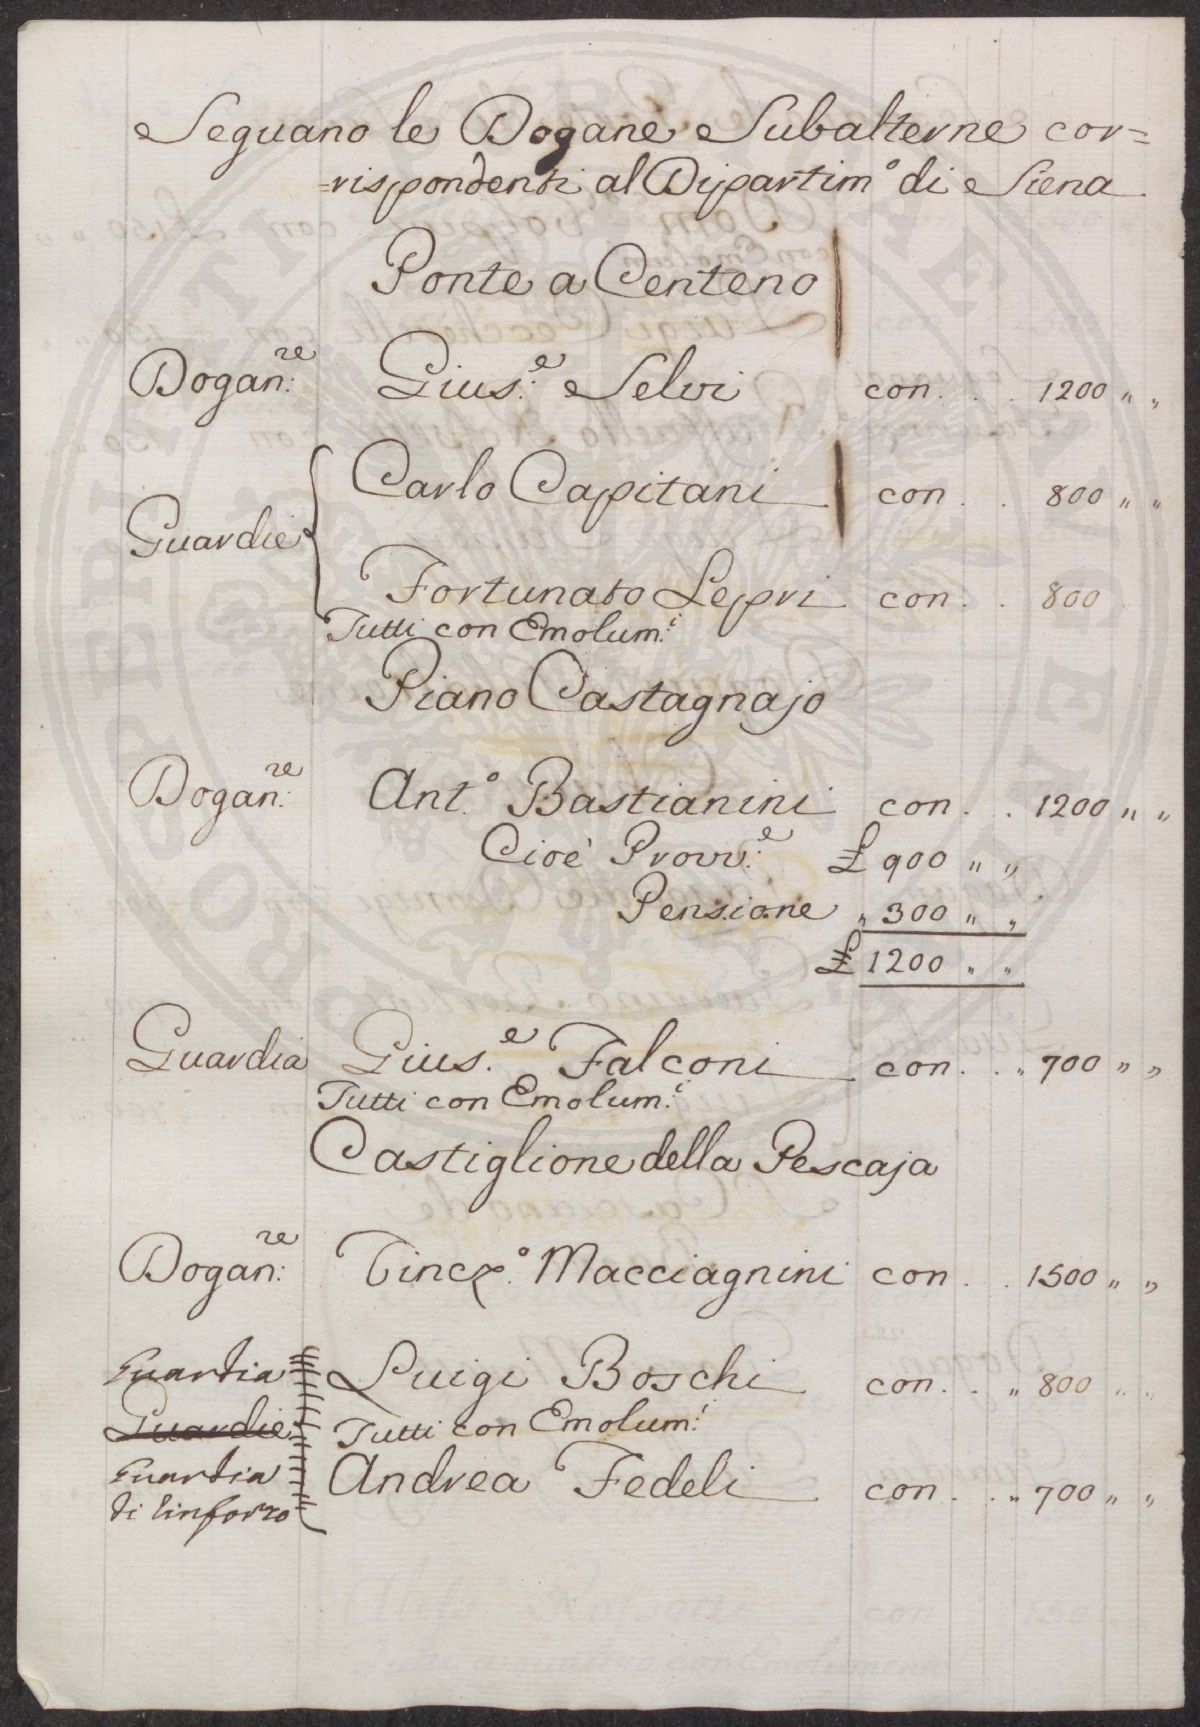 Seguano le Dogane Subalterne cor=
=rispondenti al Dipartim.º di Siena
Ponte a Centeno
Dogan:re Gius:e Selvi con . . . 1200 " "
Carlo Capitani con . . 800 " "
Guardie
Fortunato Lepri con . . 800
Tutti con Emolum:i
Piano Castagnajo
Dogan:re Ant.º Bastianini con . . 1200 " "
Cioè Provv:e £ 900 " "
Pensione " 300 " "
£ 1200 " "
Guardia Gius.e Falconi con . . " 700 " "
Tutti con Emolum:i
Castiglione della Pescaja
Dogan:re Vincz.º Macciagnini con . . 1500 " "
Guardia Luigi Boschi con . . " 800 " "
Guardie Tutti con Emolum:i
Guardia Andrea Fedeli con . . " 700 " "
di Rinforzo